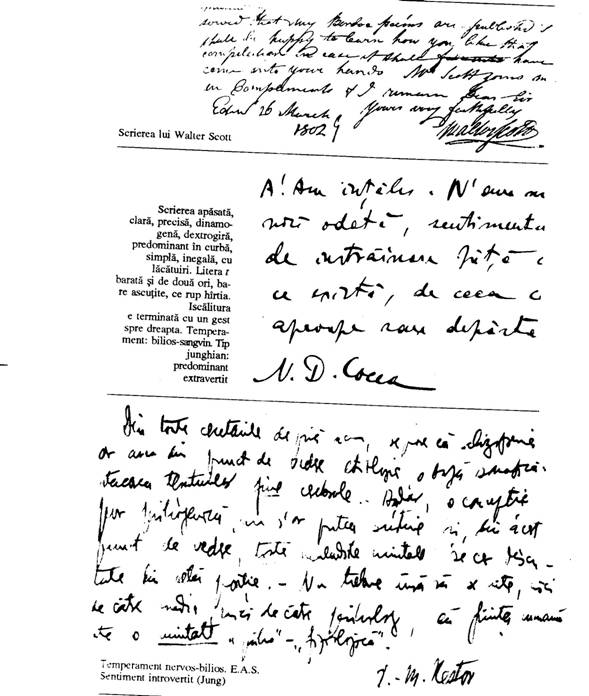 served that my Border poems are published I
shall be happy to learn how you like that
compilation in case it shall have
come into your hands Mrs Scott joins me
in Compliments & I remain Dear Sir
Edinr 26 March Yours very faithfully
1802 Walter Scott
Scrierea lui Walter Scott
Scrierea apăsată,
clară, precisă, dinamo-
genă, dextrogiră,
predominant în curbă,
simplă, inegală, cu
lăcătuiri. Litera t
barată și de două ori, ba-
re ascuțite, ce rup hîrtia.
Iscălitura
e terminată cu un gest
spre dreapta. Tempera-
ment: bilios-sangvin. Tip
junghian:
predominant
extravertit
A! Am înțeles. N'am
nici odată, sentimentu
de înstrăinare față
ce există, de ceea c
aproape sau departe
N. D. Cocea
Din toate cercetările de pînă acum, se pare că schizofrenia
ar avea din punct de vedere etiologic, o bază
țesuturilor fine cerebrale. Așadar, o concepție
pur psihogenică, nu s'ar putea susține și, din acest
punct de vedere, toate se cer discu-
tate din această poziție. - Nu trebue însă să se uite, nici
de către medic, nici de către psiholog, că ființa umană
este o unitate "psiho" - "fiziologică".
I.-M. Nestor
Temperament nervos-bilios. E.A.S.
Sentiment introvertit (Jung)